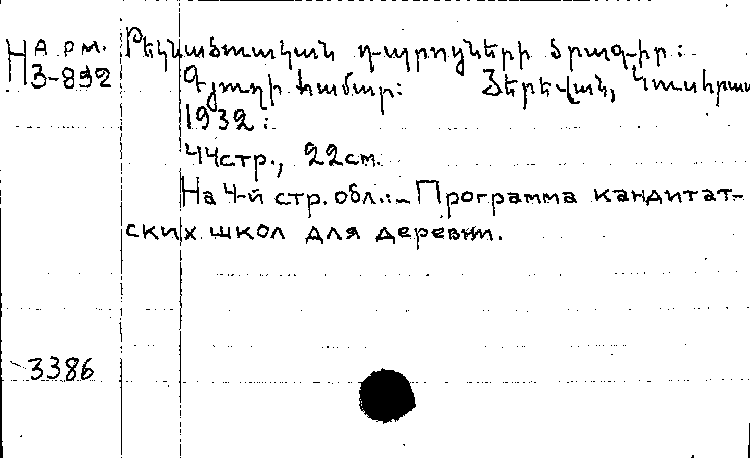 На арм. Թեկնածուական դպրոցների ծրագիր:
3-892 Գյուղի համար: Յերեվան, Կուսհրատ
1932:
44стр., 22см.
На 4-й стр. обл.:– Программа кандитат-
ских школ для деревни.
3386